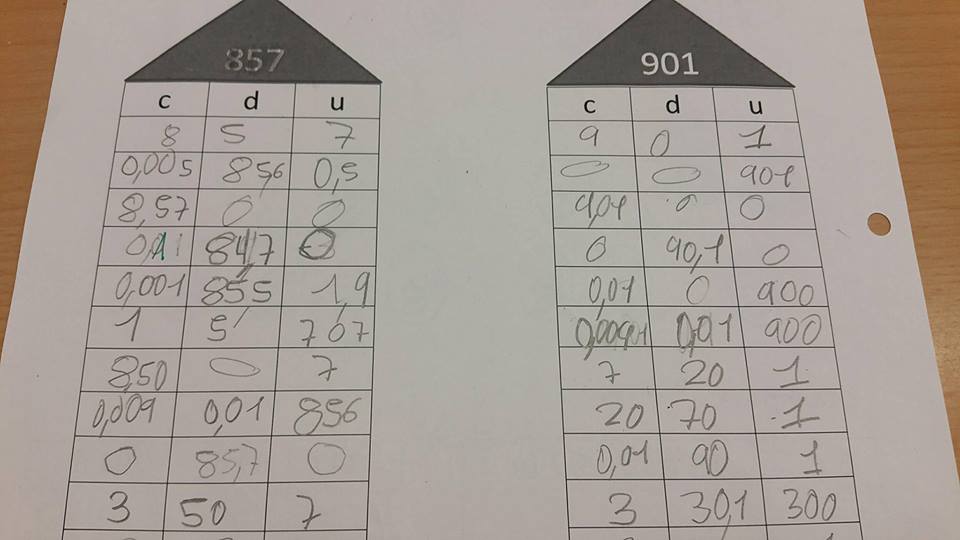 857
c d u
8 5 7
0,005 85,6 0,5
8,57 0 0
84,7 0
0,001 85,5 1,9
1 5 707
8,50 0 7
0,009 0,01 856
0 85,7 0
3 50 7
901
c d u
9 0 1
0 0 901
9,01 0 0
0 90,1 0
0,01 0 900
0,01 900
7 20 1
20 70 1
0,01 90 1
3 30,1 300